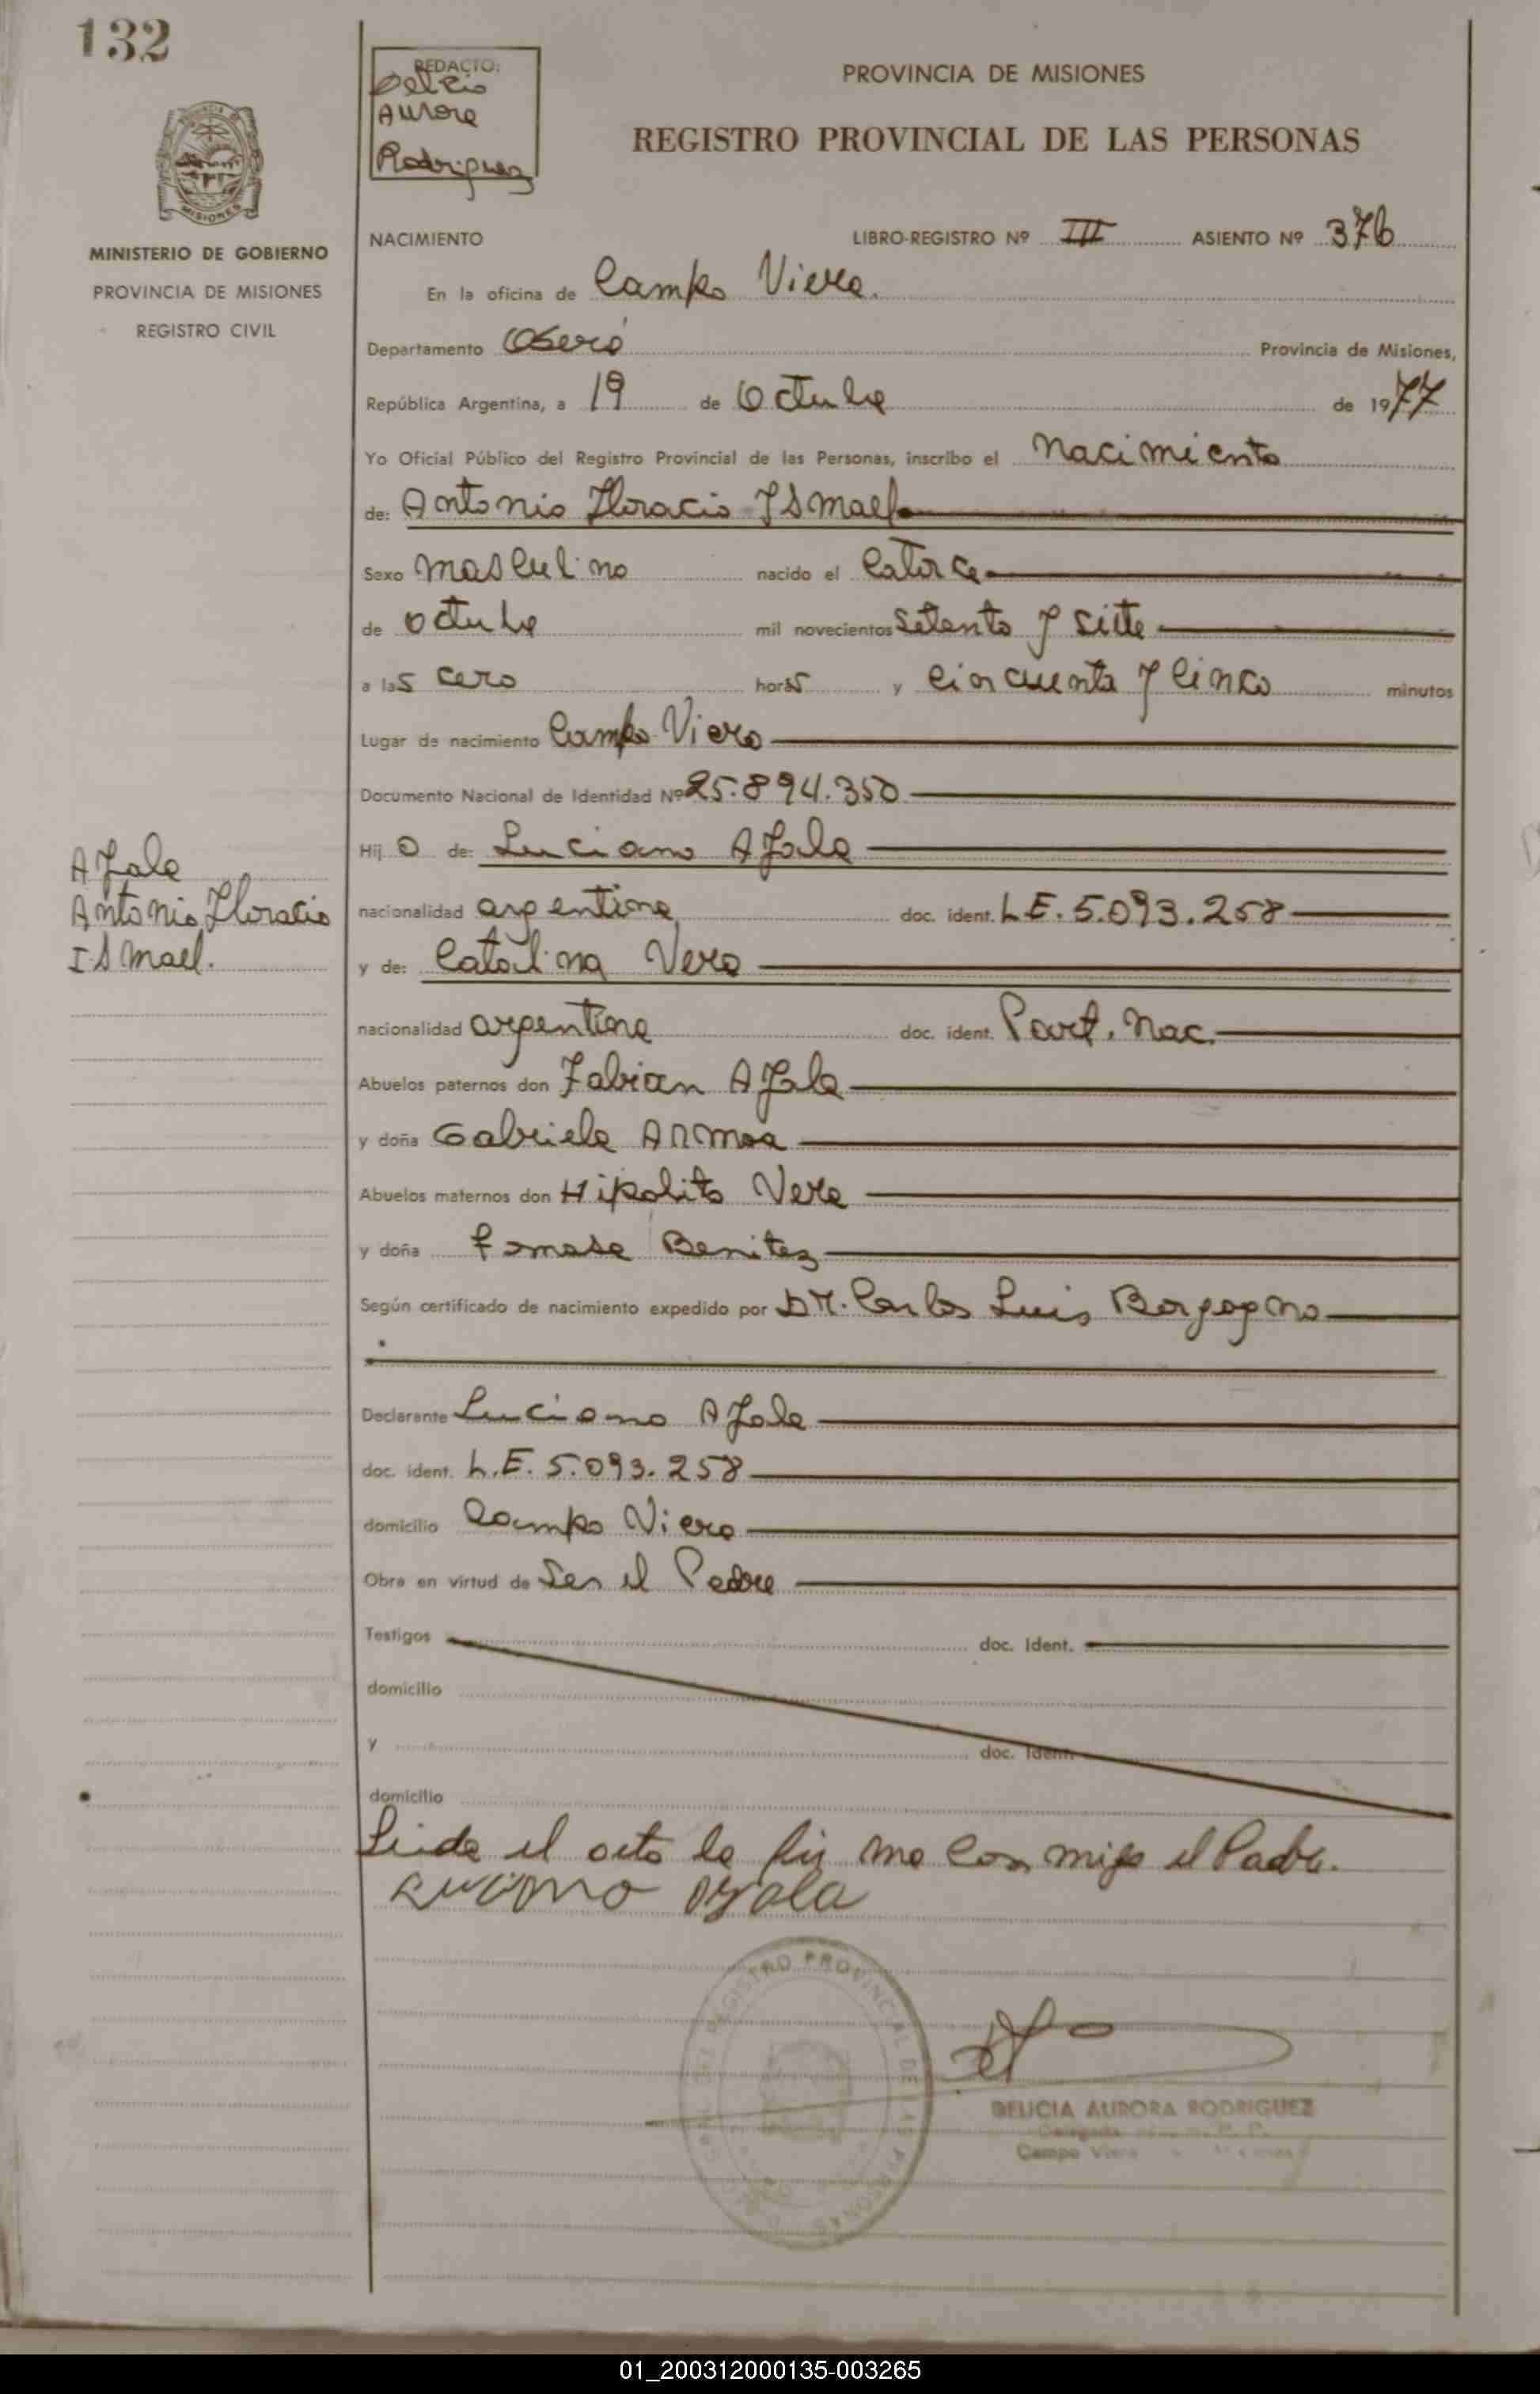 132
REDACTO:
Delicia
Aurora
Rodriguez
PROVINCIA DE MISIONES
REGISTRO PROVINCIAL DE LAS PERSONAS
PROVINCIA DE
MISIONES
MINISTERIO DE GOBIERNO
PROVINCIA DE MISIONES
REGISTRO CIVIL
NACIMIENTO LIBRO-REGISTRO Nº III ASIENTO Nº 376
En la oficina de Campo Viera.
Departamento Oberá Provincia de Misiones,
República Argentina, a 19 de Octubre de 1977
Yo Oficial Público del Registro Provincial de las Personas, inscribo el Nacimiento
de: Antonio Horacio Ismael
Sexo masculino nacido el Catorce
de octubre mil novecientos Setenta y siete
a las cero horas y cincuenta y cinco minutos
Lugar de nacimiento Campo Viera
Documento Nacional de Identidad Nº 25.894.350
Hijo de: Luciano Ayala
Ayala
Antonio Horacio
Ismael.
nacionalidad argentina doc. ident. L.E. 5.093.258
y de: Catalina Vera
nacionalidad argentina doc. ident. Part. Nac.
Abuelos paternos don Fabian Ayala
y doña Gabriela Armoa
Abuelos maternos don Hipolito Vera
y doña Tomasa Benitez
Según certificado de nacimiento expedido por DR. Carlos Luis Borgogno
Declarante Luciano Ayala
doc. ident. L.E. 5.093.258
domicilio Campo Viera
Obra en virtud de Ser el Padre
Testigos doc. Ident.
domicilio
y doc. Ident.
domicilio
Leida el acta la firma conmigo el Padre.
Luciano Ayala
REGISTRO PROVINCIAL DE LAS PERSONAS
DELICIA AURORA RODRIGUEZ
Delegada
Campo Viera
01_200312000135-003265